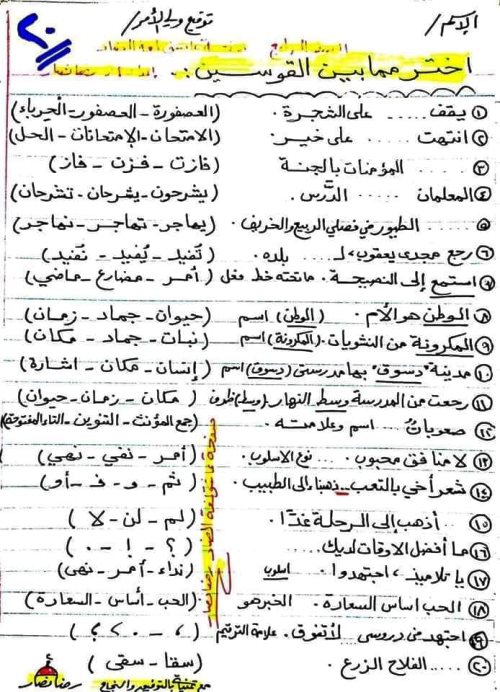 الإسم / توقيع ولي الأمر /
٢٠
اختر مما بين القوسين :-
① يقف ..... على الشجرة . (العصفورة - العصفور - الحرباء)
② انتهت ..... على خير . (الامتحان - الإمتحانات - الحل)
③ ..... المؤمنات بالجنة (فازت - فزن - فاز)
④ المعلمان ..... الدرس . (يشرحون - يشرحان - تشرحان)
⑤ ..... الطيور في فصلي الربيع والخريف . (يهاجر - تهاجر - نهاجر)
⑥ رجع مجدى يعقوب لـ ..... بلده . (تُفيد - يُفيد - نُفيد)
⑦ استمع إلى النصيحة . ما تحته خط فعل (أمر - مضارع - ماضي)
⑧ الوطن هو الأم . (الوطن) اسم (حيوان - جماد - زمان)
⑨ المكرونة من النشويات . (المكرونة) اسم (نبات - جماد - مكان)
⑩ مدينة "دسوق" بها مدرستي (دسوق) اسم (إنسان - مكان - اشارة)
⑪ رجعت من المدرسة وسط النهار (وسط) ظرف (مكان - زمان - حيوان)
⑫ صعوباتٌ ..... اسم وعلامته . (جمع المؤنث - التنوين - التاء المفتوحة)
⑬ لا منافق محبوب . .... نوع الاسلوب (أمر - نفي - نهي)
⑭ شعر أخي بالتعب .. ذهبنا إلى الطبيب . (ثم - و - ف - أو)
⑮ .. أذهب إلى الرحلة غدًا . (لم - لن - لا)
⑯ ما أفضل الاوقات لديك .... (؟ - ! - .)
⑰ يا تلاميذ ، اجتهدوا . اسلوب (نداء - أمر - نهى)
⑱ الحب اساس السعادة . الخبر هو (الحب - أساس - السعادة)
⑲ اجتهد في دروسى .. لأتفوق . علامة الترقيم (، - . - ؛ ؟)
⑳ ..... الفلاح الزرع . (سقا - سقى)
مع تمنياتي بالتوفيق والنجاح